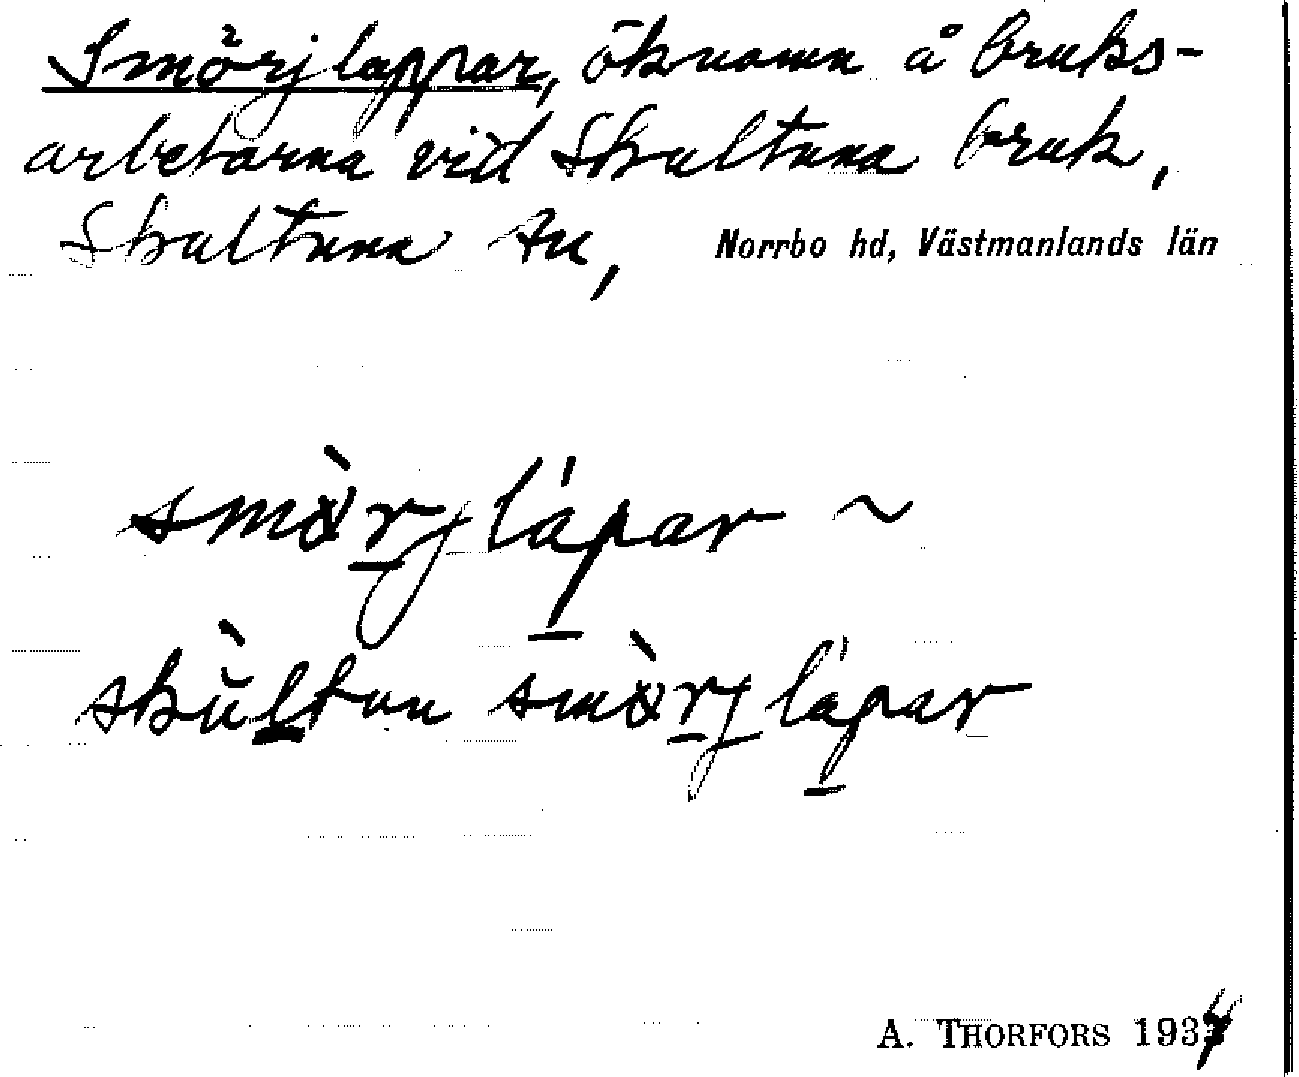 Smörjlappar, öknamn å bruks-
arbetarna vid Skultuna bruk,
Skultuna sn, Norrbo hd, Västmanlands län
smörjlapar ~
skultun smörjlapar
A. THORFORS 1934